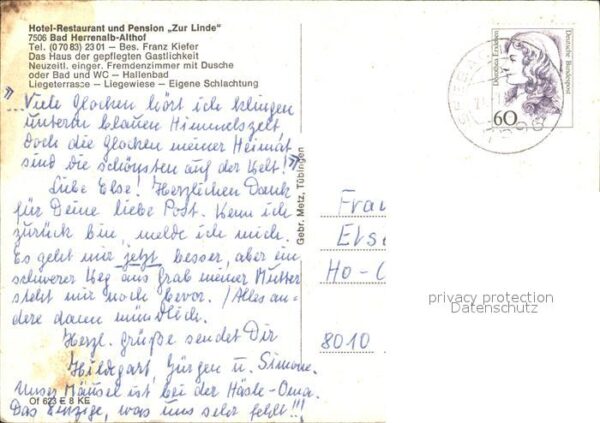 Hotel-Restaurant und Pension „Zur Linde"
7506 Bad Herrenalb-Althof
Tel. (0 70 83) 23 01 — Bes. Franz Kiefer
Das Haus der gepflegten Gastlichkeit
Neuzeitl. einger. Fremdenzimmer mit Dusche
oder Bad und WC — Hallenbad
Liegeterrasse — Liegewiese — Eigene Schlachtung
„Viele Glocken hört ich klingen
unterm blauen Himmelszelt
Doch die Glocken meiner Heimat
sind die schönsten auf der Welt!"
Liebe Else! Herzlichen Dank
für Deine liebe Post. Wenn ich
zurück bin, melde ich mich.
Es geht mir jetzt besser, aber ein
schwerer Weg ans Grab meiner Mutter
steht mir noch bevor. / Alles an-
dere dann mündlich.
Herzl. Grüße sendet Dir
Hildegart, Jürgen u. Simone.
Unser Mäusel ist bei der Häsle-Oma.
Das Einzige, was uns sehr fehlt!!!
Of 623 E 8 KE
Gebr. Metz, Tübingen
Dorothea Erxleben
Deutsche Bundespost
60
Frau
Else
Ho-
8010
privacy protection
Datenschutz